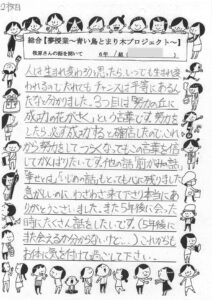 2枚目
総合【夢授業～青い鳥とまり木プロジェクト～】
牧原さんの話を聞いて 6年 組(
人は生まれ変わろうと思ったら、いつでも生まれ変
われるのでだれでもチャンスは平等にあるん
だなと分かりました。3つ目は「努力の丘に
成功の花がさく」という言葉です。努力を
したら必ず成功すると確信したのでこれ
から努力をしてつらくなってもこの言葉を信
じてがんばりたいです。他の話
事とかは心に残りました
わざわざ来て下さり本当にあ
りがとうございました。また5年後に会った
時にたくさん話をしたいです。(5年後に
また会えるか分からないけど…)これからも
お体に気を付けて過ごして下さい。